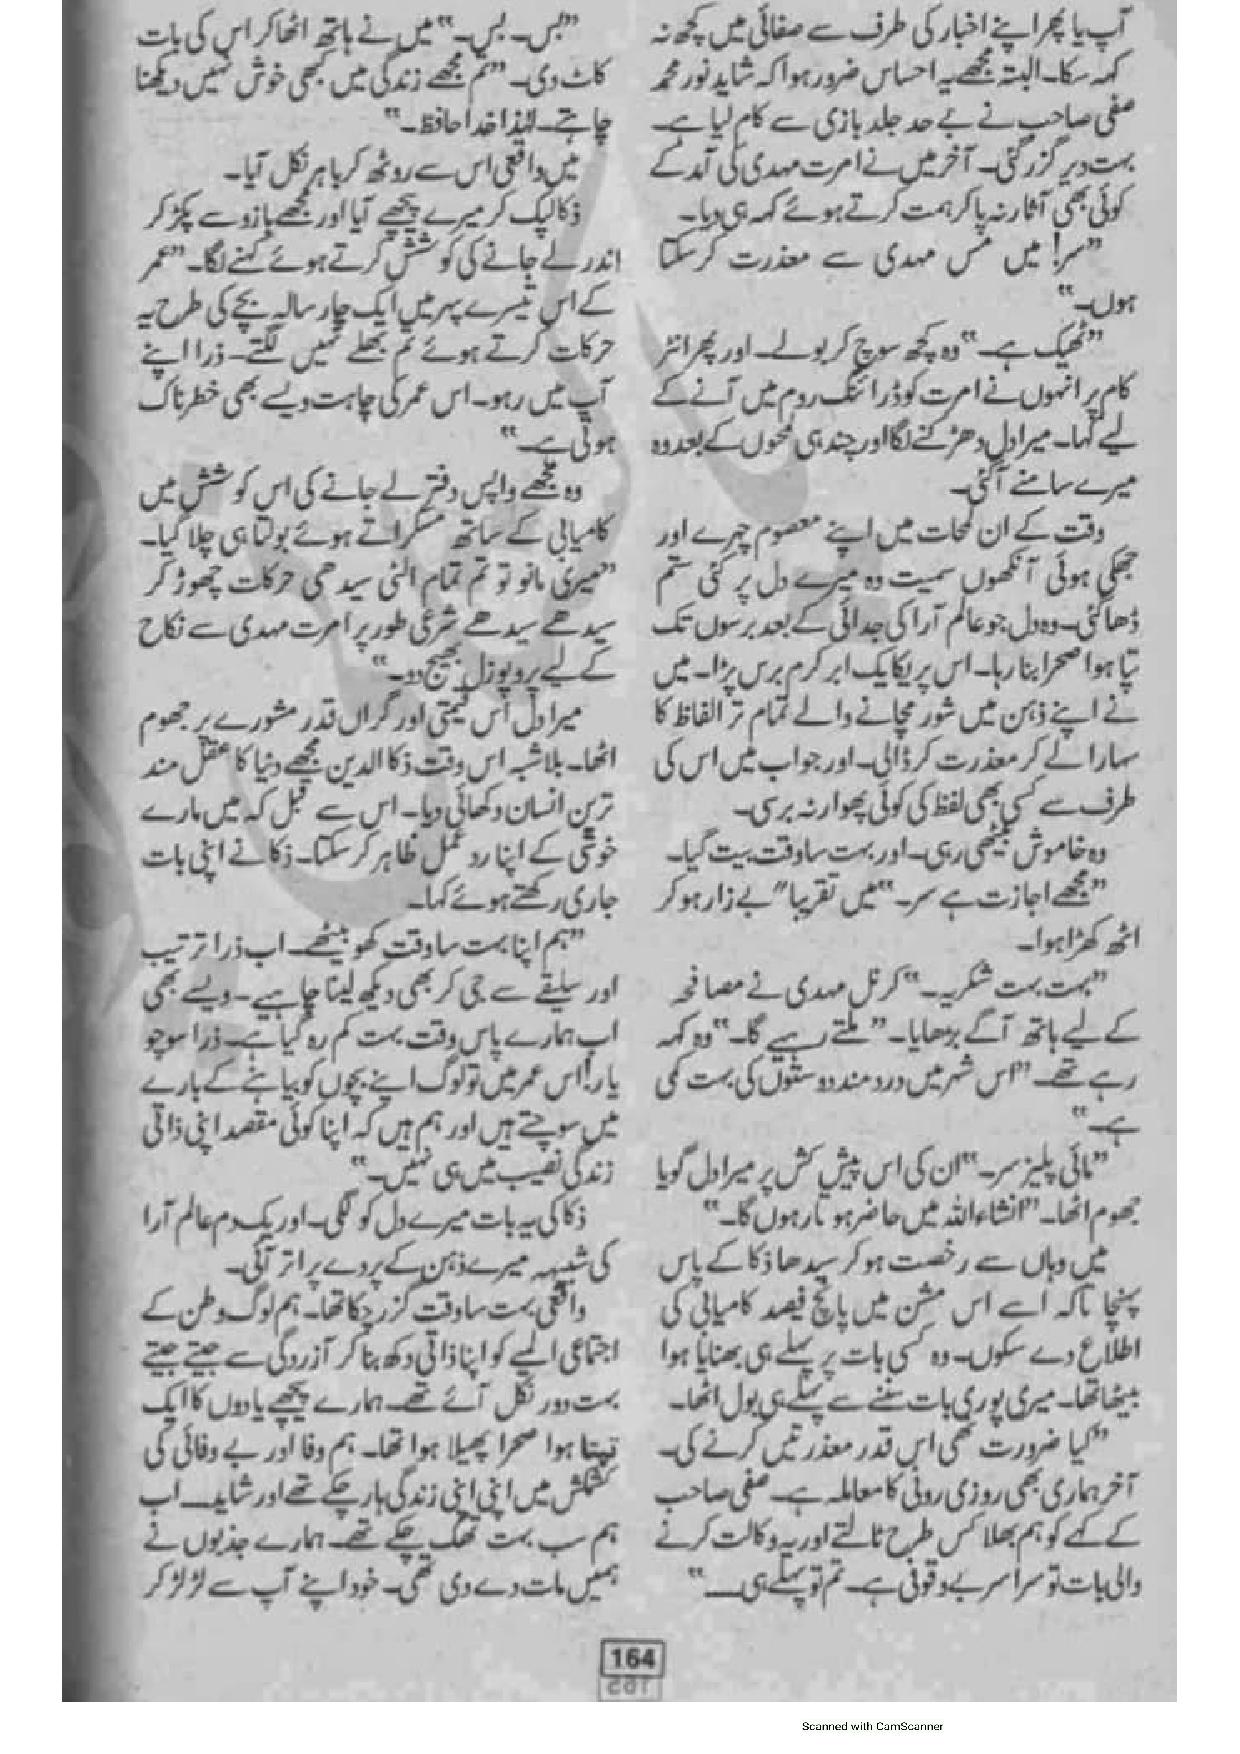 آپ یا پھر اپنے اخبار کی طرف سے صفائی میں کچھ نہ
کہہ سکا۔ البتہ مجھے یہ احساس ضرور ہوا کہ شاید نور محمد
صفی صاحب نے بے حد جلد بازی سے کام لیا ہے۔
بہت دیر گزر گئی۔ آخر میں نے امرت مہدی کی آمد کے
کوئی بھی آثار نہ پا کر ہمت کرتے ہوئے کہہ ہی دیا۔
”سر! میں مس مہدی سے معذرت کر سکتا
ہوں۔“
”ٹھیک ہے۔“ وہ کچھ سوچ کر بولے۔ اور پھر انٹر
کام پر انہوں نے امرت کو ڈرائنگ روم میں آنے کے
لیے کہا۔ میرا دل دھڑکنے لگا اور چند ہی لمحوں کے بعد وہ
میرے سامنے آ گئی۔
وقت کے ان لمحات میں اپنے معصوم چہرے اور
جھکی ہوئی آنکھوں سمیت وہ میرے دل پر کئی ستم
ڈھا گئی۔ وہ دل جو عالم آرا کی جدائی کے بعد برسوں تک
تپتا ہوا صحرا بنا رہا۔ اس پر یکایک ابر کرم برس پڑا۔ میں
نے اپنے ذہن میں شور مچانے والے تمام تر الفاظ کا
سہارا لے کر معذرت کر ڈالی۔ اور جواب میں اس کی
طرف سے کسی بھی لفظ کی کوئی پھوار نہ برسی۔
وہ خاموش بیٹھی رہی۔ اور بہت سا وقت بیت گیا۔
”مجھے اجازت ہے سر۔“ میں تقریبا" بے زار ہو کر
اٹھ کھڑا ہوا۔
”بہت بہت شکریہ۔“ کرنل مہدی نے مصافحہ
کے لیے ہاتھ آگے بڑھایا۔ ”ملتے رہیے گا۔“ وہ کہہ
رہے تھے۔ ”اس شہر میں درد مند دوستوں کی بہت کمی
ہے۔“
”مائی پلیز سر۔“ ان کی اس پیش کش پر میرا دل گویا
جھوم اٹھا۔ ”انشاءاللہ میں حاضر ہوتا رہوں گا۔“
میں وہاں سے رخصت ہو کر سیدھا ذکا کے پاس
پہنچا تاکہ اسے اس مشن میں پانچ فیصد کامیابی کی
اطلاع دے سکوں۔ وہ کسی بات پر پہلے ہی بھنایا ہوا
بیٹھا تھا۔ میری پوری بات سننے سے پہلے ہی بول اٹھا۔
”کیا ضرورت تھی اس قدر معذرتیں کرنے کی۔
آخر ہماری بھی روزی روٹی کا معاملہ ہے۔ صفی صاحب
کے کہے کو ہم بھلا کس طرح ٹالتے اور یہ وکالت کرنے
والی بات تو سراسر بے وقوفی ہے۔ تم تو پہلے ہی۔۔۔“
”بس۔ بس۔“ میں نے ہاتھ اٹھا کر اس کی بات
کاٹ دی۔ ”تم مجھے زندگی میں کبھی خوش نہیں دیکھنا
چاہتے۔ لہٰذا خدا حافظ۔“
میں واقعی اس سے روٹھ کر باہر نکل آیا۔
ذکا لپک کر میرے پیچھے آیا اور مجھے بازو سے پکڑ کر
اندر لے جانے کی کوشش کرتے ہوئے کہنے لگا۔ ”عمر
کے اس تیسرے پہر میں ایک چار سالہ بچے کی طرح یہ
حرکات کرتے ہوئے تم بھلے نہیں لگتے۔ ذرا اپنے
آپ میں رہو۔ اس عمر کی چاہت ویسے بھی خطرناک
ہوتی ہے۔“
وہ مجھے واپس دفتر لے جانے کی اس کوشش میں
کامیابی کے ساتھ مسکراتے ہوئے بولتا ہی چلا گیا۔
”میری مانو تو تم تمام الٹی سیدھی حرکات چھوڑ کر
سیدھے سیدھے شرعی طور پر امرت مہدی سے نکاح
کے لیے پروپوزل بھیج دو۔“
میرا دل اس قیمتی اور گراں قدر مشورے پر جھوم
اٹھا۔ بلاشبہ اس وقت ذکا الدین مجھے دنیا کا عقل مند
ترین انسان دکھائی دیا۔ اس سے قبل کہ میں مارے
خوشی کے اپنا رد عمل ظاہر کر سکتا۔ ذکا نے اپنی بات
جاری رکھتے ہوئے کہا۔
”ہم اپنا بہت سا وقت کھو بیٹھے۔ اب ذرا ترتیب
اور سلیقے سے جی کر بھی دیکھ لینا چاہیے۔ ویسے بھی
اب ہمارے پاس وقت بہت کم رہ گیا ہے۔ ذرا سوچو
یار! اس عمر میں تو لوگ اپنے بچوں کو بیاہنے کے بارے
میں سوچتے ہیں اور ہم ہیں کہ اپنا کوئی مقصد اپنی ذاتی
زندگی نصیب میں ہی نہیں۔“
ذکا کی یہ بات میرے دل کو لگی۔ اور یک دم عالم آرا
کی شبیہہ میرے ذہن کے پردے پر اتر آئی۔
واقعی بہت سا وقت گزر چکا تھا۔ ہم لوگ وطن کے
اجتماعی المیے کو اپنا ذاتی دکھ بنا کر آزردگی سے جیتے جیتے
بہت دور نکل آئے تھے۔ ہمارے پیچھے یادوں کا ایک
تپتا ہوا صحرا پھیلا ہوا تھا۔ ہم وفا اور بے وفائی کی
کشمکش میں اپنی اپنی زندگی ہار چکے تھے اور شاید۔۔۔ اب
ہم سب بہت تھک چکے تھے۔ ہمارے جذبوں نے
ہمیں مات دے دی تھی۔ خود اپنے آپ سے لڑ لڑ کر
164
Scanned with CamScanner